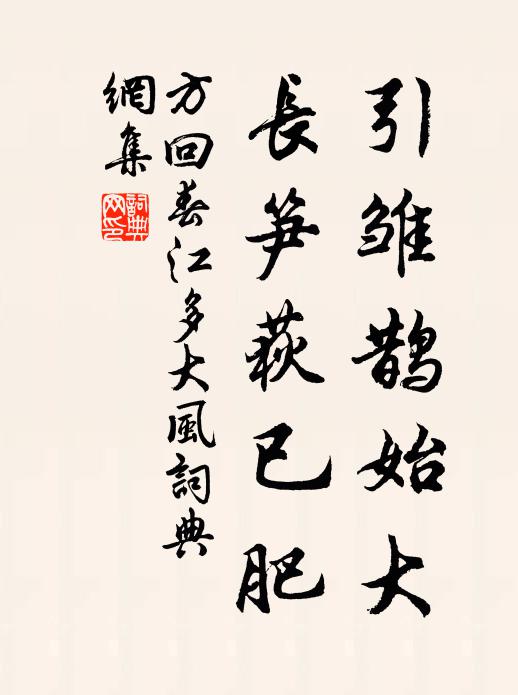 引雏鹊始大
長笋荻已肥
方回春江多大風詞典
網集
詞典
网印